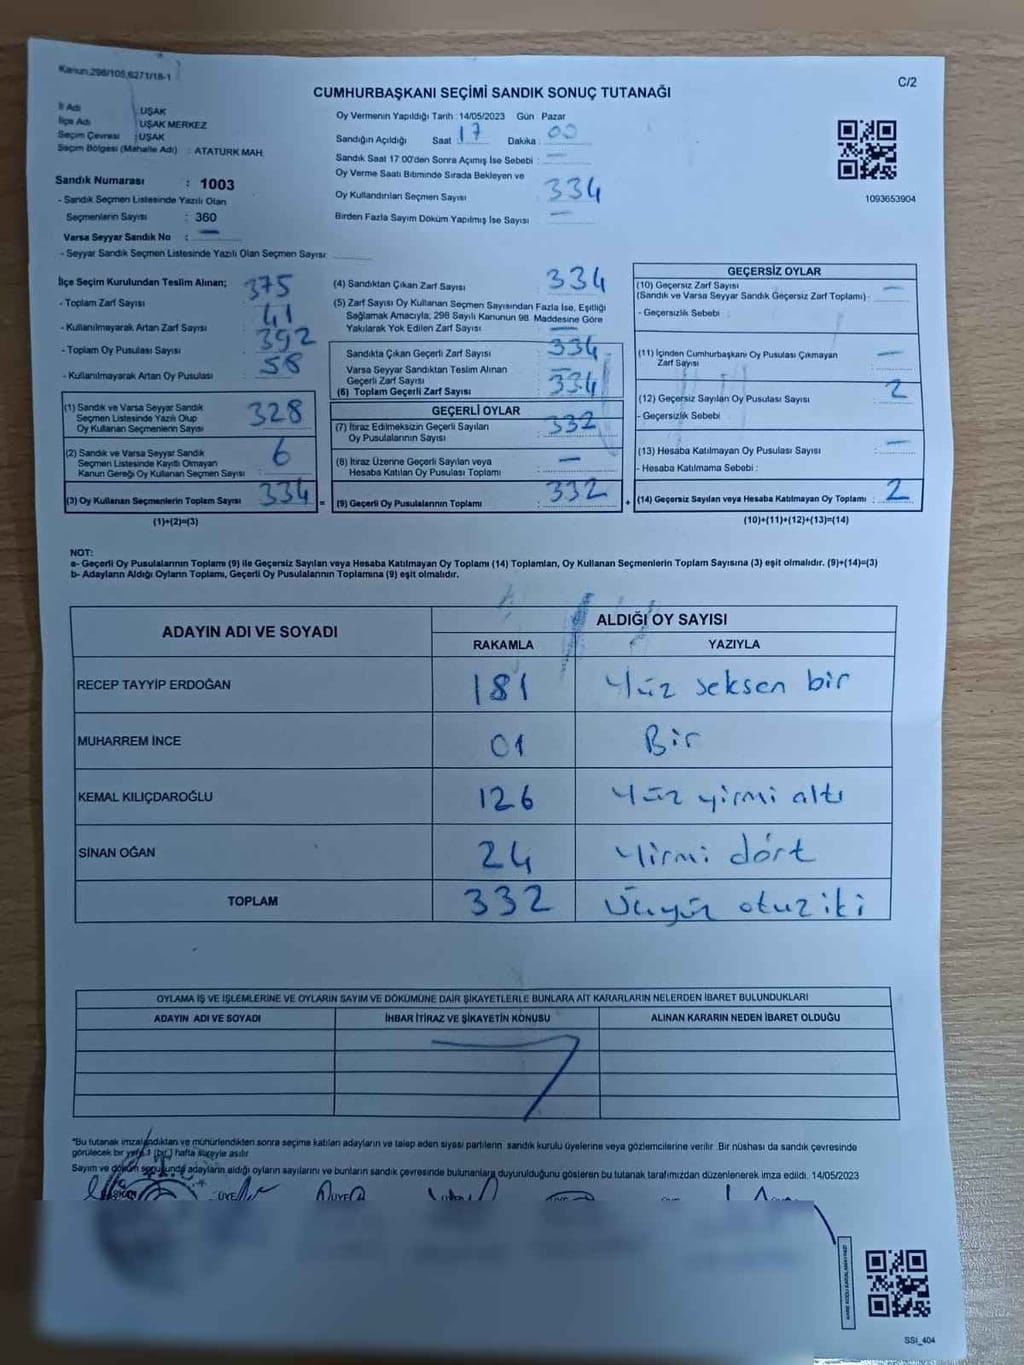 Kanun:298/105,6271/18-1
C/2
CUMHURBAŞKANI SEÇİMİ SANDIK SONUÇ TUTANAĞI
İl Adı : UŞAK
İlçe Adı : UŞAK MERKEZ
Seçim Çevresi : UŞAK
Seçim Bölgesi (Mahalle Adı) : ATATÜRK MAH.
Sandık Numarası : 1003
- Sandık Seçmen Listesinde Yazılı Olan
Seçmenlerin Sayısı : 360
Varsa Seyyar Sandık No : —
- Seyyar Sandık Seçmen Listesinde Yazılı Olan Seçmen Sayısı:
Oy Vermenin Yapıldığı Tarih : 14/05/2023 Gün Pazar
Sandığın Açıldığı Saat : 17 Dakika : 00
Sandık Saat 17.00'den Sonra Açımış İse Sebebi : —
Oy Verme Saati Bitiminde Sırada Bekleyen ve
Oy Kullandırılan Seçmen Sayısı 334
Birden Fazla Sayım Döküm Yapılmış İse Sayısı —
1093653904
İlçe Seçim Kurulundan Teslim Alınan;
- Toplam Zarf Sayısı 375
- Kullanılmayarak Artan Zarf Sayısı 41
- Toplam Oy Pusulası Sayısı 392
- Kullanılmayarak Artan Oy Pusulası 58
(1) Sandık ve Varsa Seyyar Sandık
Seçmen Listesinde Yazılı Olup
Oy Kullanan Seçmenlerin Sayısı 328
(2) Sandık ve Varsa Seyyar Sandık
Seçmen Listesinde Kayıtlı Olmayan
Kanun Gereği Oy Kullanan Seçmen Sayısı 6
(3) Oy Kullanan Seçmenlerin Toplam Sayısı 334 =
(1)+(2)=(3)
(4) Sandıktan Çıkan Zarf Sayısı 334
(5) Zarf Sayısı Oy Kullanan Seçmen Sayısından Fazla İse, Eşitliği
Sağlamak Amacıyla; 298 Sayılı Kanunun 98. Maddesine Göre
Yakılarak Yok Edilen Zarf Sayısı —
Sandıkta Çıkan Geçerli Zarf Sayısı 334
Varsa Seyyar Sandıktan Teslim Alınan
Geçerli Zarf Sayısı —
(6) Toplam Geçerli Zarf Sayısı 334
GEÇERLİ OYLAR
(7) İtiraz Edilmeksizin Geçerli Sayılan
Oy Pusulalarının Sayısı 332
(8) İtiraz Üzerine Geçerli Sayılan veya
Hesaba Katılan Oy Pusulası Toplamı —
(9) Geçerli Oy Pusulalarının Toplamı : 332 +
GEÇERSİZ OYLAR
(10) Geçersiz Zarf Sayısı
(Sandık ve Varsa Seyyar Sandık Geçersiz Zarf Toplamı) : —
- Geçersizlik Sebebi :
(11) İçinden Cumhurbaşkanı Oy Pusulası Çıkmayan
Zarf Sayısı —
(12) Geçersiz Sayılan Oy Pusulası Sayısı 2
- Geçersizlik Sebebi :
(13) Hesaba Katılmayan Oy Pusulası Sayısı —
- Hesaba Katılmama Sebebi :
(14) Geçersiz Sayılan veya Hesaba Katılmayan Oy Toplamı : 2
(10)+(11)+(12)+(13)=(14)
NOT:
a- Geçerli Oy Pusulalarının Toplamı (9) ile Geçersiz Sayılan veya Hesaba Katılmayan Oy Toplamı (14) Toplamları, Oy Kullanan Seçmenlerin Toplam Sayısına (3) eşit olmalıdır. (9)+(14)=(3)
b- Adayların Aldığı Oyların Toplamı, Geçerli Oy Pusulalarının Toplamına (9) eşit olmalıdır.
ADAYIN ADI VE SOYADI
ALDIĞI OY SAYISI
RAKAMLA YAZIYLA
RECEP TAYYİP ERDOĞAN 181 Yüz seksen bir
MUHARREM İNCE 01 Bir
KEMAL KILIÇDAROĞLU 126 Yüz yirmi altı
SİNAN OĞAN 24 Yirmi dört
TOPLAM 332 Üçyüz otuz iki
OYLAMA İŞ VE İŞLEMLERİNE VE OYLARIN SAYIM VE DÖKÜMÜNE DAİR ŞİKAYETLERLE BUNLARA AİT KARARLARIN NELERDEN İBARET BULUNDUKLARI
ADAYIN ADI VE SOYADI İHBAR İTİRAZ VE ŞİKAYETİN KONUSU ALINAN KARARIN NEDEN İBARET OLDUĞU
*Bu tutanak imzalandıktan ve mühürlendikten sonra seçime katılan adayların ve talep eden siyasi partilerin sandık kurulu üyelerine veya gözlemcilerine verilir. Bir nüshası da sandık çevresinde
görülecek bir yere 1 (bir) hafta süreyle asılır.
Sayım ve döküm sonucunda adayların aldığı oyların sayılarını ve bunların sandık çevresinde bulunanlara duyurulduğunu gösteren bu tutanak tarafımızdan düzenlenerek imza edildi. 14/05/2023
SSI_404